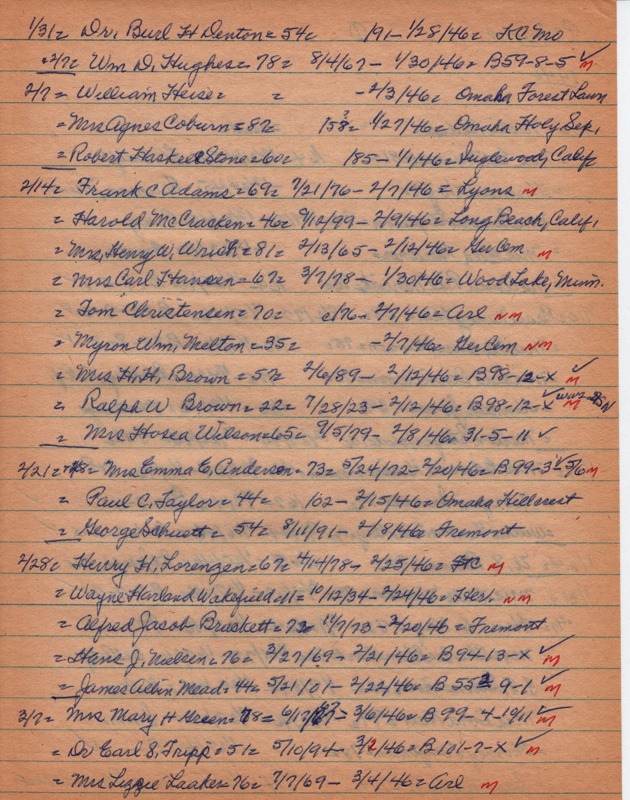 1/31= Dr. Burl H Denton= 54= /91- 1/28/46= KC Mo
*2/7= Wm D. Hughes= 78= 8/4/67- 1/30/46= B59-8-5 ✓ M
2/7= William Heise= = -2/3/46= Omaha Forest Lawn
=Mrs Agnes Coburn=87= 158?= 1/27/46= Omaha Holy Sep.
=Robert Haskell Stone=60= 185- 1/1/46= Inglewood, Calif
2/14= Frank C Adams=69= 7/21/76- 2/7/46= Lyons M
= Harold McCracken=46= 9/12/99- 2/9/46= Long Beach, Calif.
= Mrs. Henry W. Wrich=81= 2/13/65- 2/12/46= Ger Cem M
= Mrs Carl Hansen=67= 3/7/78- 1/30/46= Wood Lake, Minn.
= Tom Christensen=70= c/76- 2/7/46= Arl NM
* Myron Wm. Melton=35= -2/7/46= Ger Cem NM
= Mrs H.H. Brown=57= 2/6/89- 2/12/46= B98-12-X ✓ M
= Ralph W Brown=22= 7/28/23- 2/12/46= B98-12-X ✓ WW2 M
= Mrs Hosea Wilson=65= 9/5/79- 2/8/46= 31-5-11 ✓
2/21= Mrs Emma E. Anderson=73= 5/24/72- 2/20/46= B99-3- 5/6 ✓ M
= Paul C. Taylor=44= 102- 2/15/46= Omaha Hillcrest
= George Schuett= 54= 8/11/91- 2/8/46= Fremont
2/28= Henry H. Lorenzen=67= 4/14/78- 2/25/46= M
= Wayne Harland Wakefield=11= 10/12/34- 2/24/46= Her. NM
= Alfred Jacob Brackett=72= 11/7/73- 2/20/46= Fremont
= Hans J. Nielsen=76= 3/27/69- 2/21/46= B94-13-X ✓ M
= James Albin Mead=44= 5/21/01- 2/22/46= B 552 9-1 ✓ M
3/7= Mrs Mary H Green=78= 6/17/67- 3/6/46= B 99-4-10/11 ✓ M
= Dr Earl S. Tripp=51= 5/10/94- 3/2/46= B101-7-X ✓ M
= Mrs Lizzie Laaker=76= 7/7/69- 3/4/46= Arl M